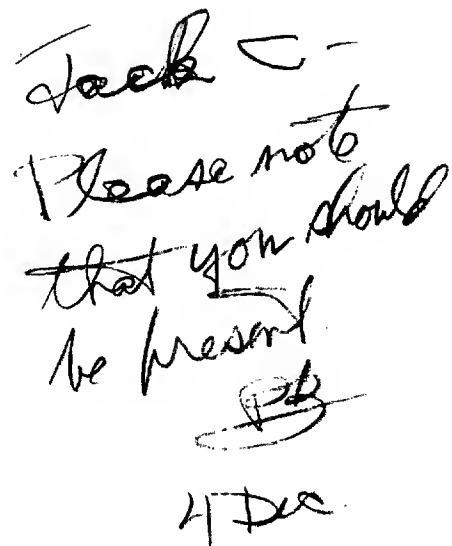 Jack —
Please note
that you should
be present.
4 Dec.